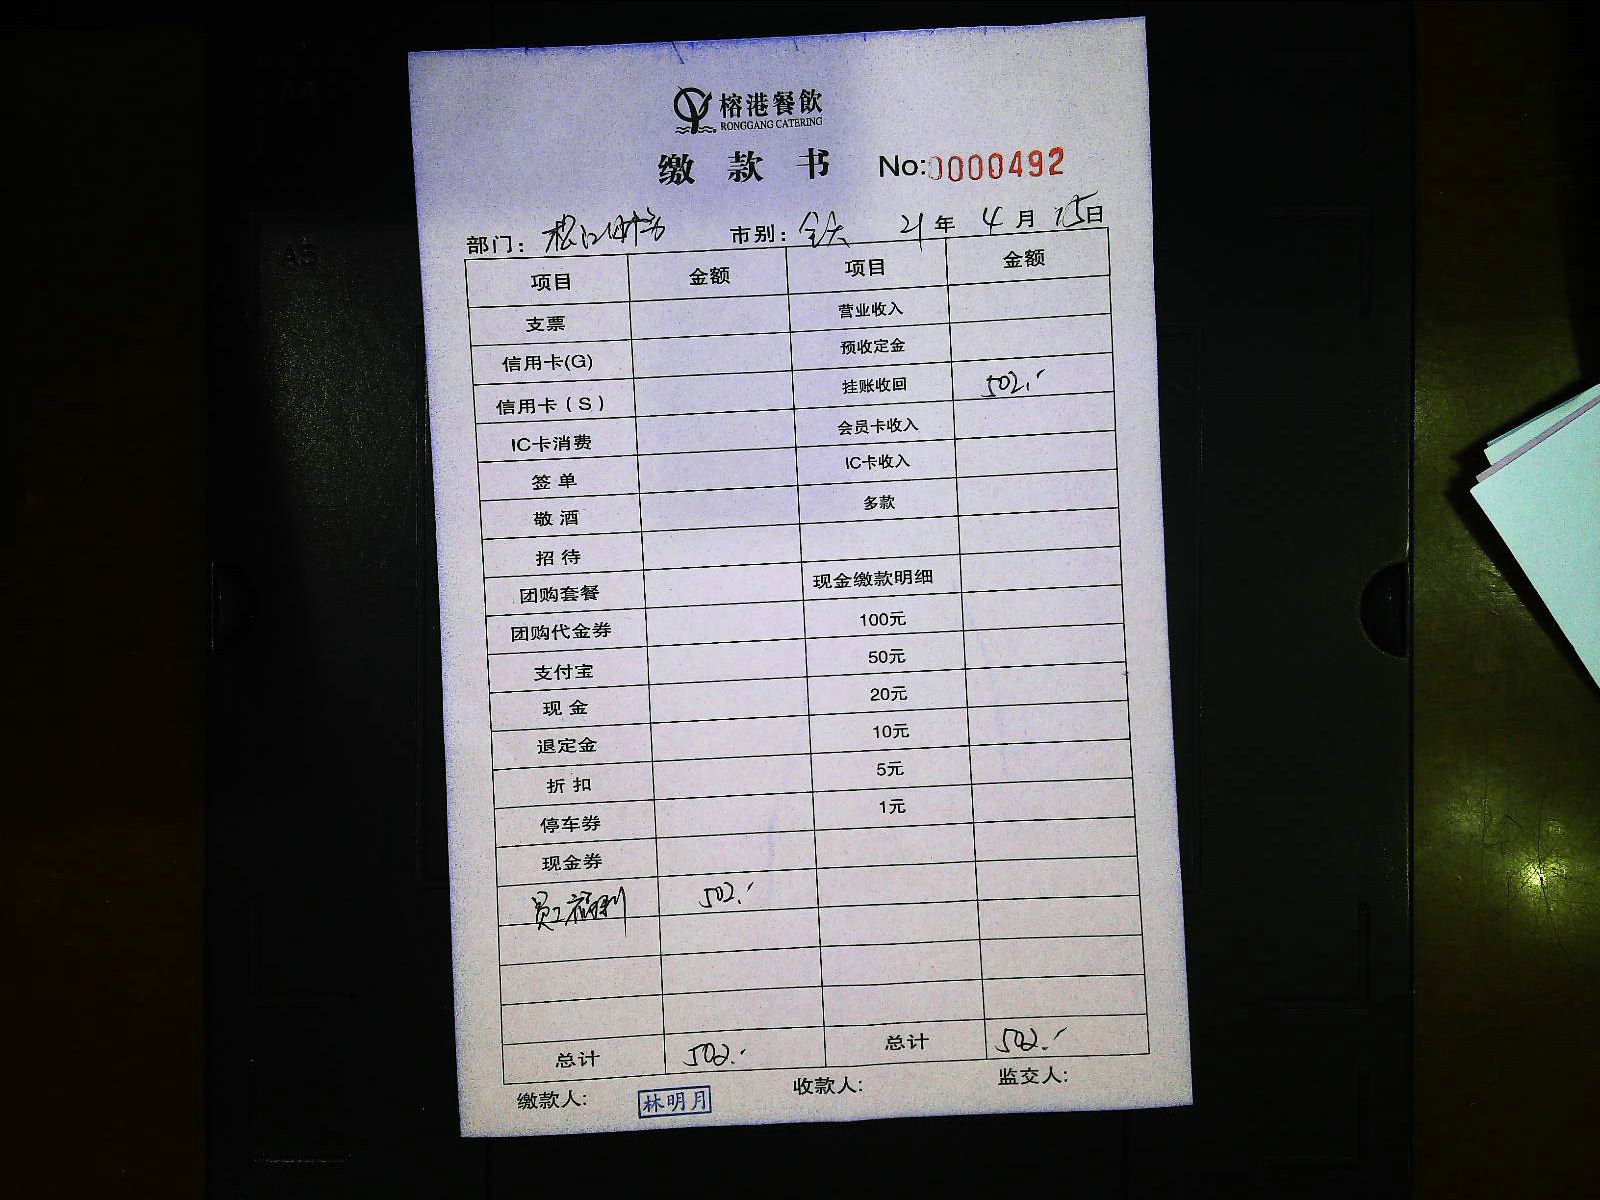 榕港餐飲
RONGGANG CATERING
缴 款 书 No:0000492
部门: 松江 市别: 全天 21 年 4 月 15 日
项目 金额 项目 金额
支票 营业收入
信用卡(G) 预收定金
信用卡(S) 挂账收回 502.-
IC卡消费 会员卡收入
签 单 IC卡收入
敬 酒 多款
招 待
团购套餐 现金缴款明细
团购代金券 100元
支付宝 50元
现 金 20元
退定金 10元
折 扣 5元
停车券 1元
现金券
员工福利 502.-
总计 502.- 总计 502.-
缴款人: 林明月 收款人: 监交人: